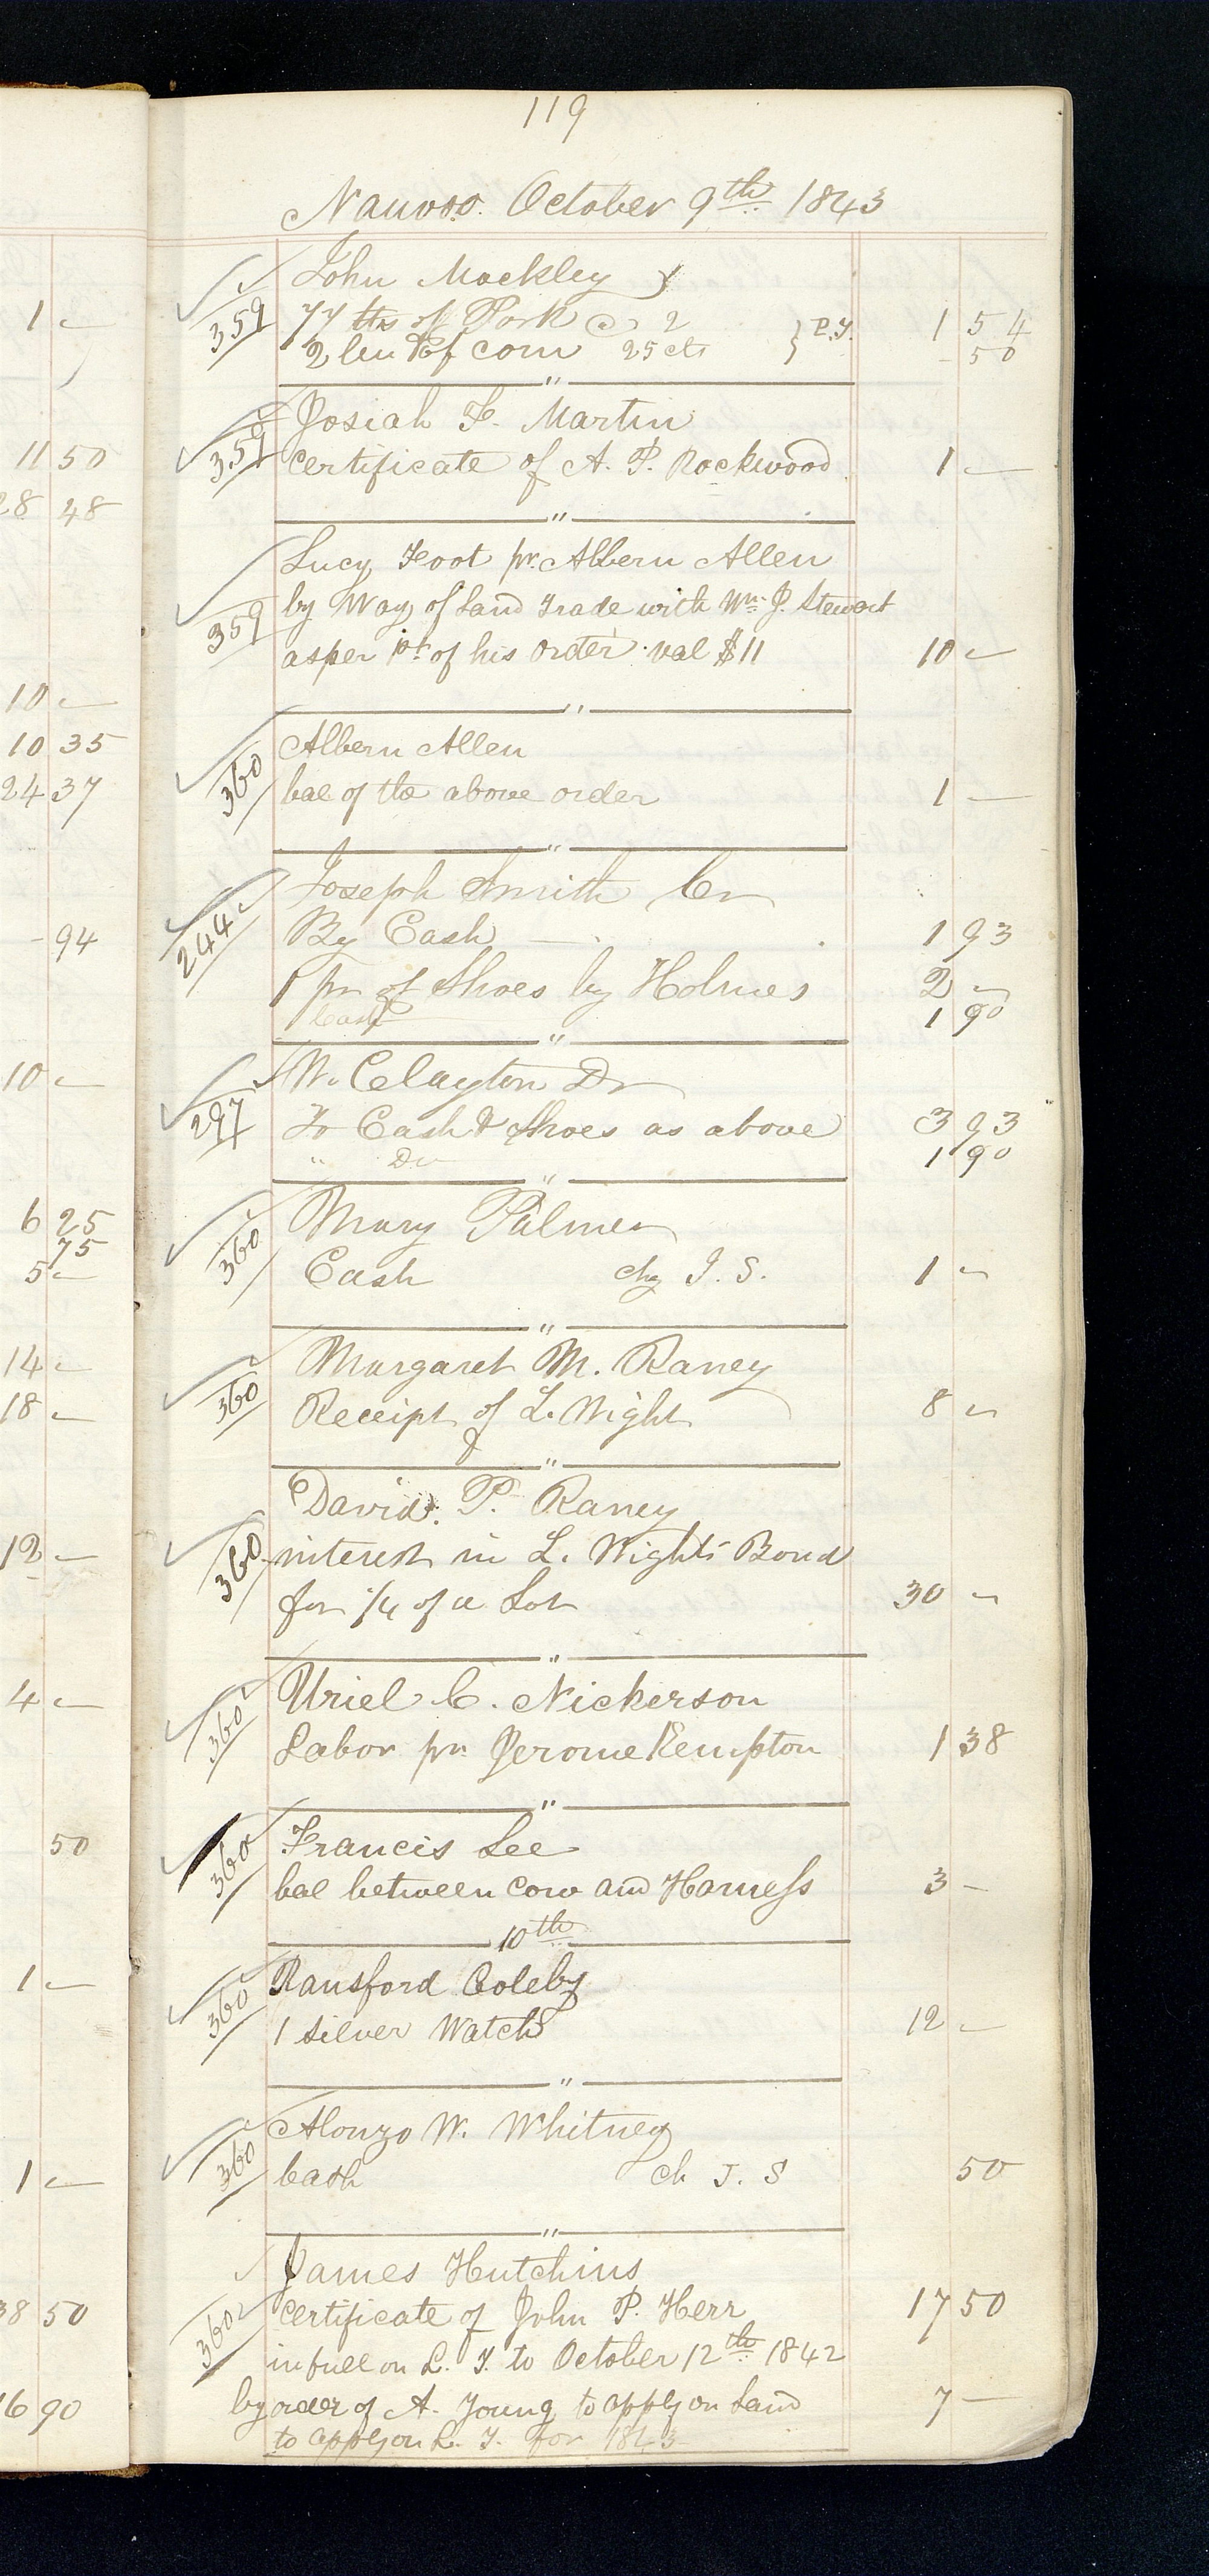 119
Nauvoo. October 9th 1843
John Mackley
359 77 lbs of Pork @ 2 P.T. 1 54
2 bu of corn 25 cts - 50
"
Josiah F. Martin
359 Certificate of A. P. Rockwood 1 —
"
Lucy Foot pr. Albern Allen
359 by Way of Land Trade with Wm. J. Stewart
as per pt of his order val $11 10 —
"
Albern Allen
360 bal of the above order 1 —
"
Joseph Smith Cr
244 By Cash 1 93
1 pr of Shoes by Holmes 2 —
Cash 1 90
"
W. Clayton Dr
297 To Cash & Shoes as above 3 93
" Do 1 90
"
Mary Palmer
360 Cash chg J. S. 1 —
"
Margaret M. Raney
360 Receipt of L. Wight 8 —
"
David P. Raney
360 interest in L. Wights Bond
for 1/4 of a Lot 30 —
"
Uriel C. Nickerson
360 Labor pr. Jerome Kempton 1 38
"
Francis Lee
360 bal between cow and Harness 3 —
10th
Ransford Coleby
360 1 Silver Watch 12 —
"
Alonzo W. Whitney
360 Cash ch J. S 50
"
James Hutchins
360 Certificate of John P. Herr 17 50
in full on L. T. to October 12th 1842
by order of A. Young to apply on Land 7 —
to apply on L. T. for 1843
1 —
11 50
28 48
10 —
10 35
24 37
- 94
10 —
6 25
75
5 —
14 —
18 —
12 —
4 —
50
1 —
1 —
38 50
16 90